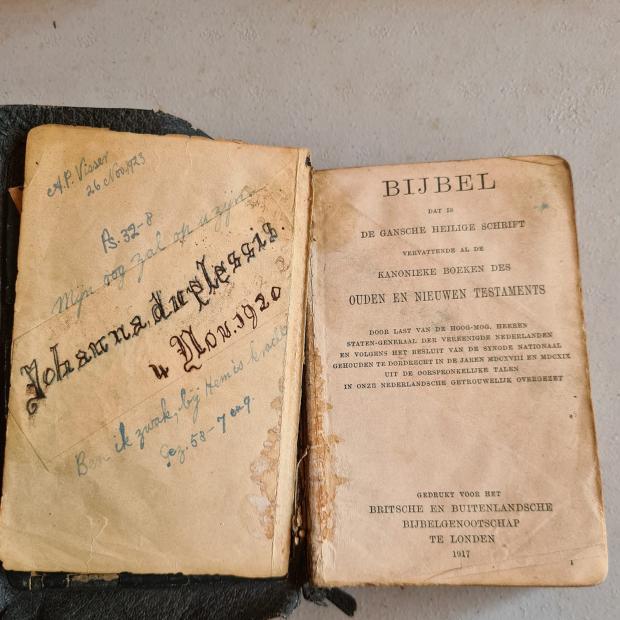 A.P. Visser
26 Nov. 1923
Ps. 32-8
Mijn oog zal op u zijn
Johanna du Plessis.
4 Nov. 1920
Ben ik zwak, bij Hem is kracht
Gez. 58-7 en 9.
BIJBEL
DAT IS
DE GANSCHE HEILIGE SCHRIFT
VERVATTENDE AL DE
KANONIEKE BOEKEN DES
OUDEN EN NIEUWEN TESTAMENTS
DOOR LAST VAN DE HOOG-MOG. HEEREN
STATEN-GENERAAL DER VEREENIGDE NEDERLANDEN
EN VOLGENS HET BESLUIT VAN DE SYNODE NATIONAAL
GEHOUDEN TE DORDRECHT IN DE JAREN MDCXVIII EN MDCXIX
UIT DE OORSPRONKELIJKE TALEN
IN ONZE NEDERLANDSCHE GETROUWELIJK OVERGEZET
GEDRUKT VOOR HET
BRITSCHE EN BUITENLANDSCHE
BIJBELGENOOTSCHAP
TE LONDEN
1917
1